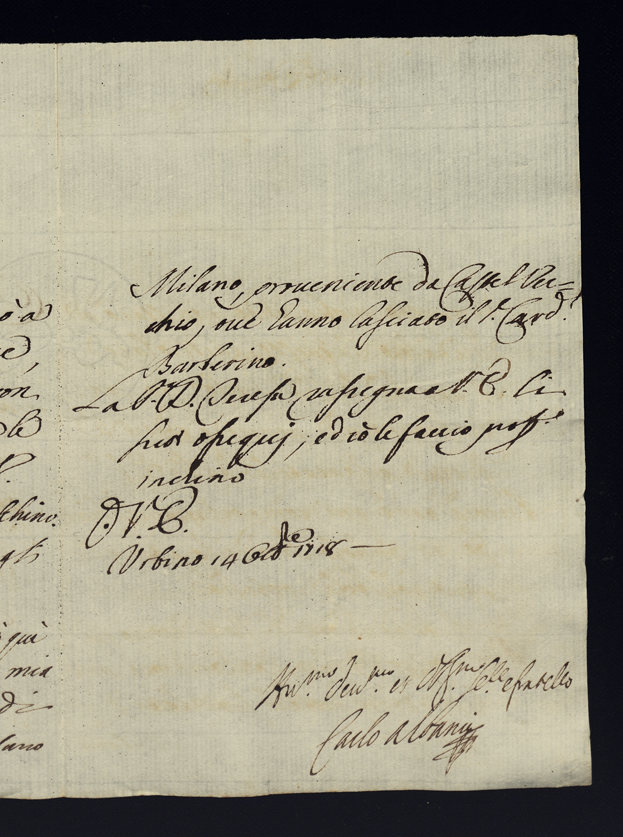 ò a
e,
on
le
chino.
qui
mia
di
Milano, proveniente da Castel Vec=
chio, ove hanno lasciato il S.r Card.l
Barberino.
La S.D. Teresa rassegna a V.E. li
suoi ossequj, ed iò le faccio
inclino
D.V.E.
Urbino 14 Ott.re 1718 —
Um.mo Dev.mo et Obl.mo e fratello
Carlo Albani